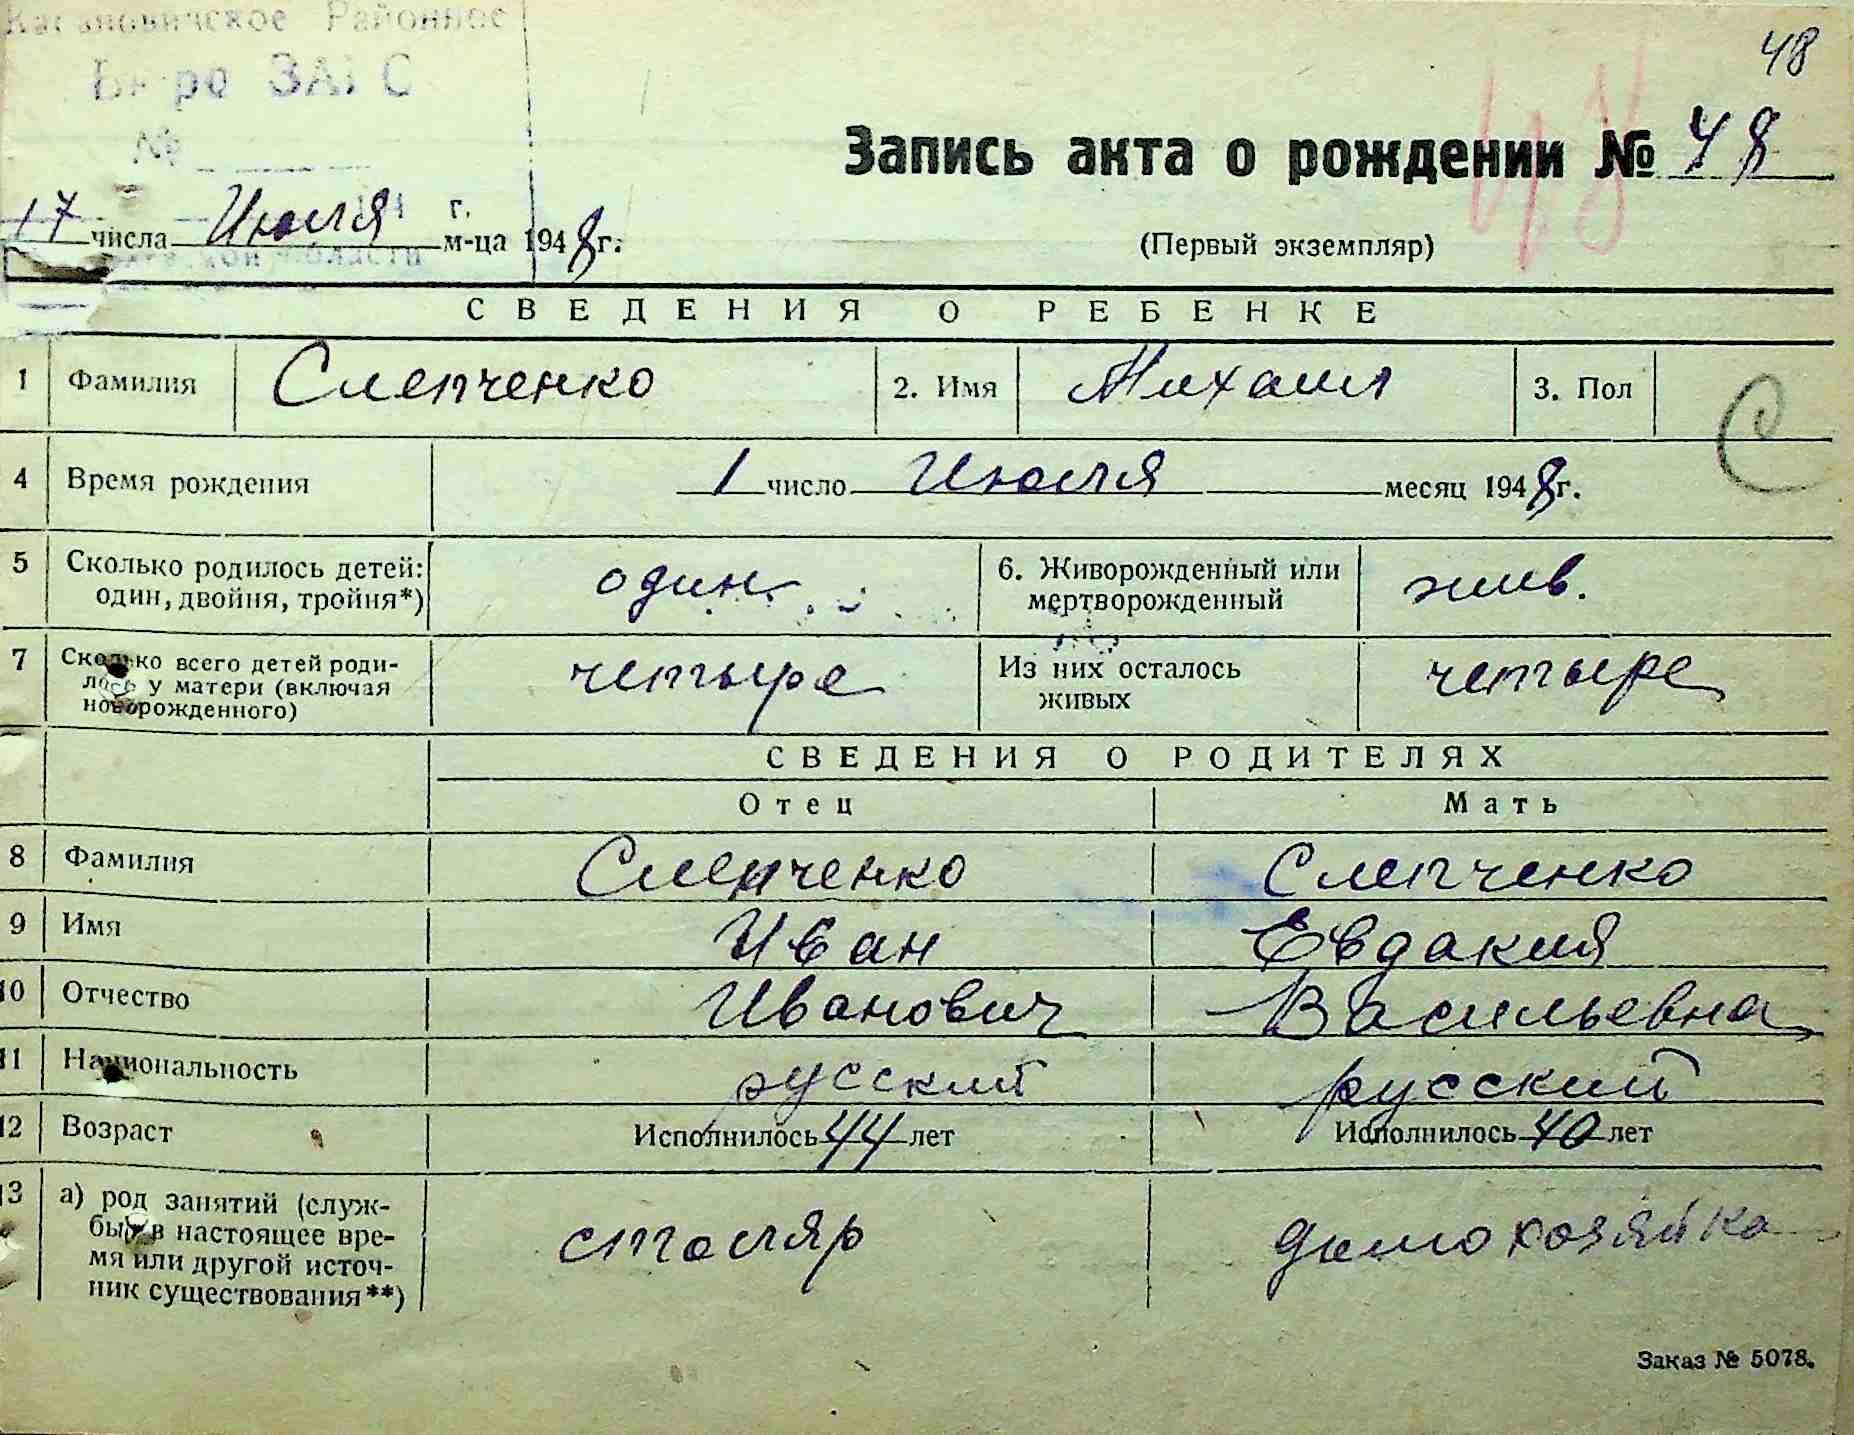 Кагановичское Районное
Бюро ЗАГС
№
48
Запись акта о рождении № 48
17 числа Июля м-ца 1948 г.
г.
области
(Первый экземпляр)
СВЕДЕНИЯ О РЕБЕНКЕ
1 Фамилия Слепченко 2. Имя Михаил 3. Пол
С
4 Время рождения 1 число Июля месяц 1948 г.
5 Сколько родилось детей: один, 6. Живорожденный или жив.
один, двойня, тройня*) мертворожденный
7 Сколько всего детей роди- четыре Из них осталось четыре
лось у матери (включая живых
новорожденного)
СВЕДЕНИЯ О РОДИТЕЛЯХ
Отец Мать
8 Фамилия Слепченко Слепченко
9 Имя Иван Евдакия
10 Отчество Иванович Васильевна
11 Национальность русский русский
12 Возраст Исполнилось 44 лет Исполнилось 40 лет
13 а) род занятий (служ-
бы) в настоящее вре- столяр домохозяйка
мя или другой источ-
ник существования**)
Заказ № 5078.